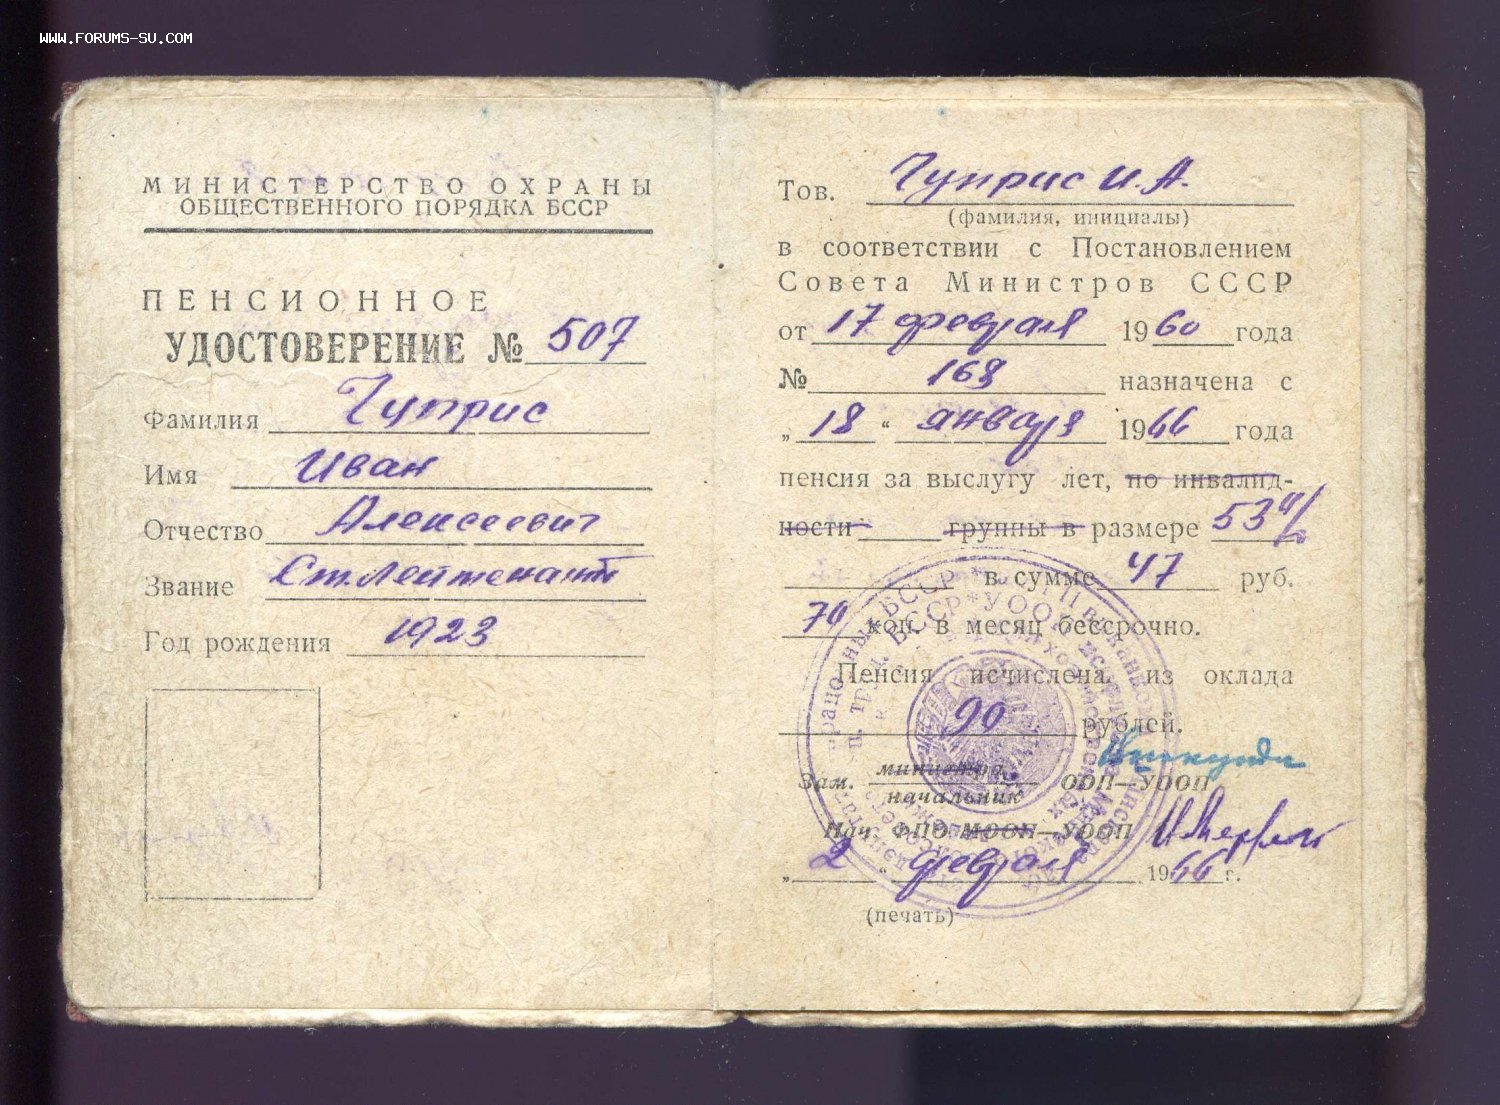 WWW.FORUMS-SU.COM
МИНИСТЕРСТВО ОХРАНЫ
ОБЩЕСТВЕННОГО ПОРЯДКА БССР
ПЕНСИОННОЕ
УДОСТОВЕРЕНИЕ № 507
Фамилия Чуприс
Имя Иван
Отчество Алексеевич
Звание Ст. Лейтенант
Год рождения 1923
Тов. Чуприс И. А.
(фамилия, инициалы)
в соответствии с Постановлением
Совета Министров СССР
от 17 февраля 1960 года
№ 168 назначена с
„ 18 “ января 1966 года
пенсия за выслугу лет, по инвалид-
ности группы в размере 53%
в сумме 47 руб.
70 коп. в месяц бессрочно.
Пенсия исчислена из оклада
90 рублей.
министра
Зам. ООП—УООП
начальник
Нач. ФПО МООП—УООП
„ 2 “ февраля 1966 г.
(печать)